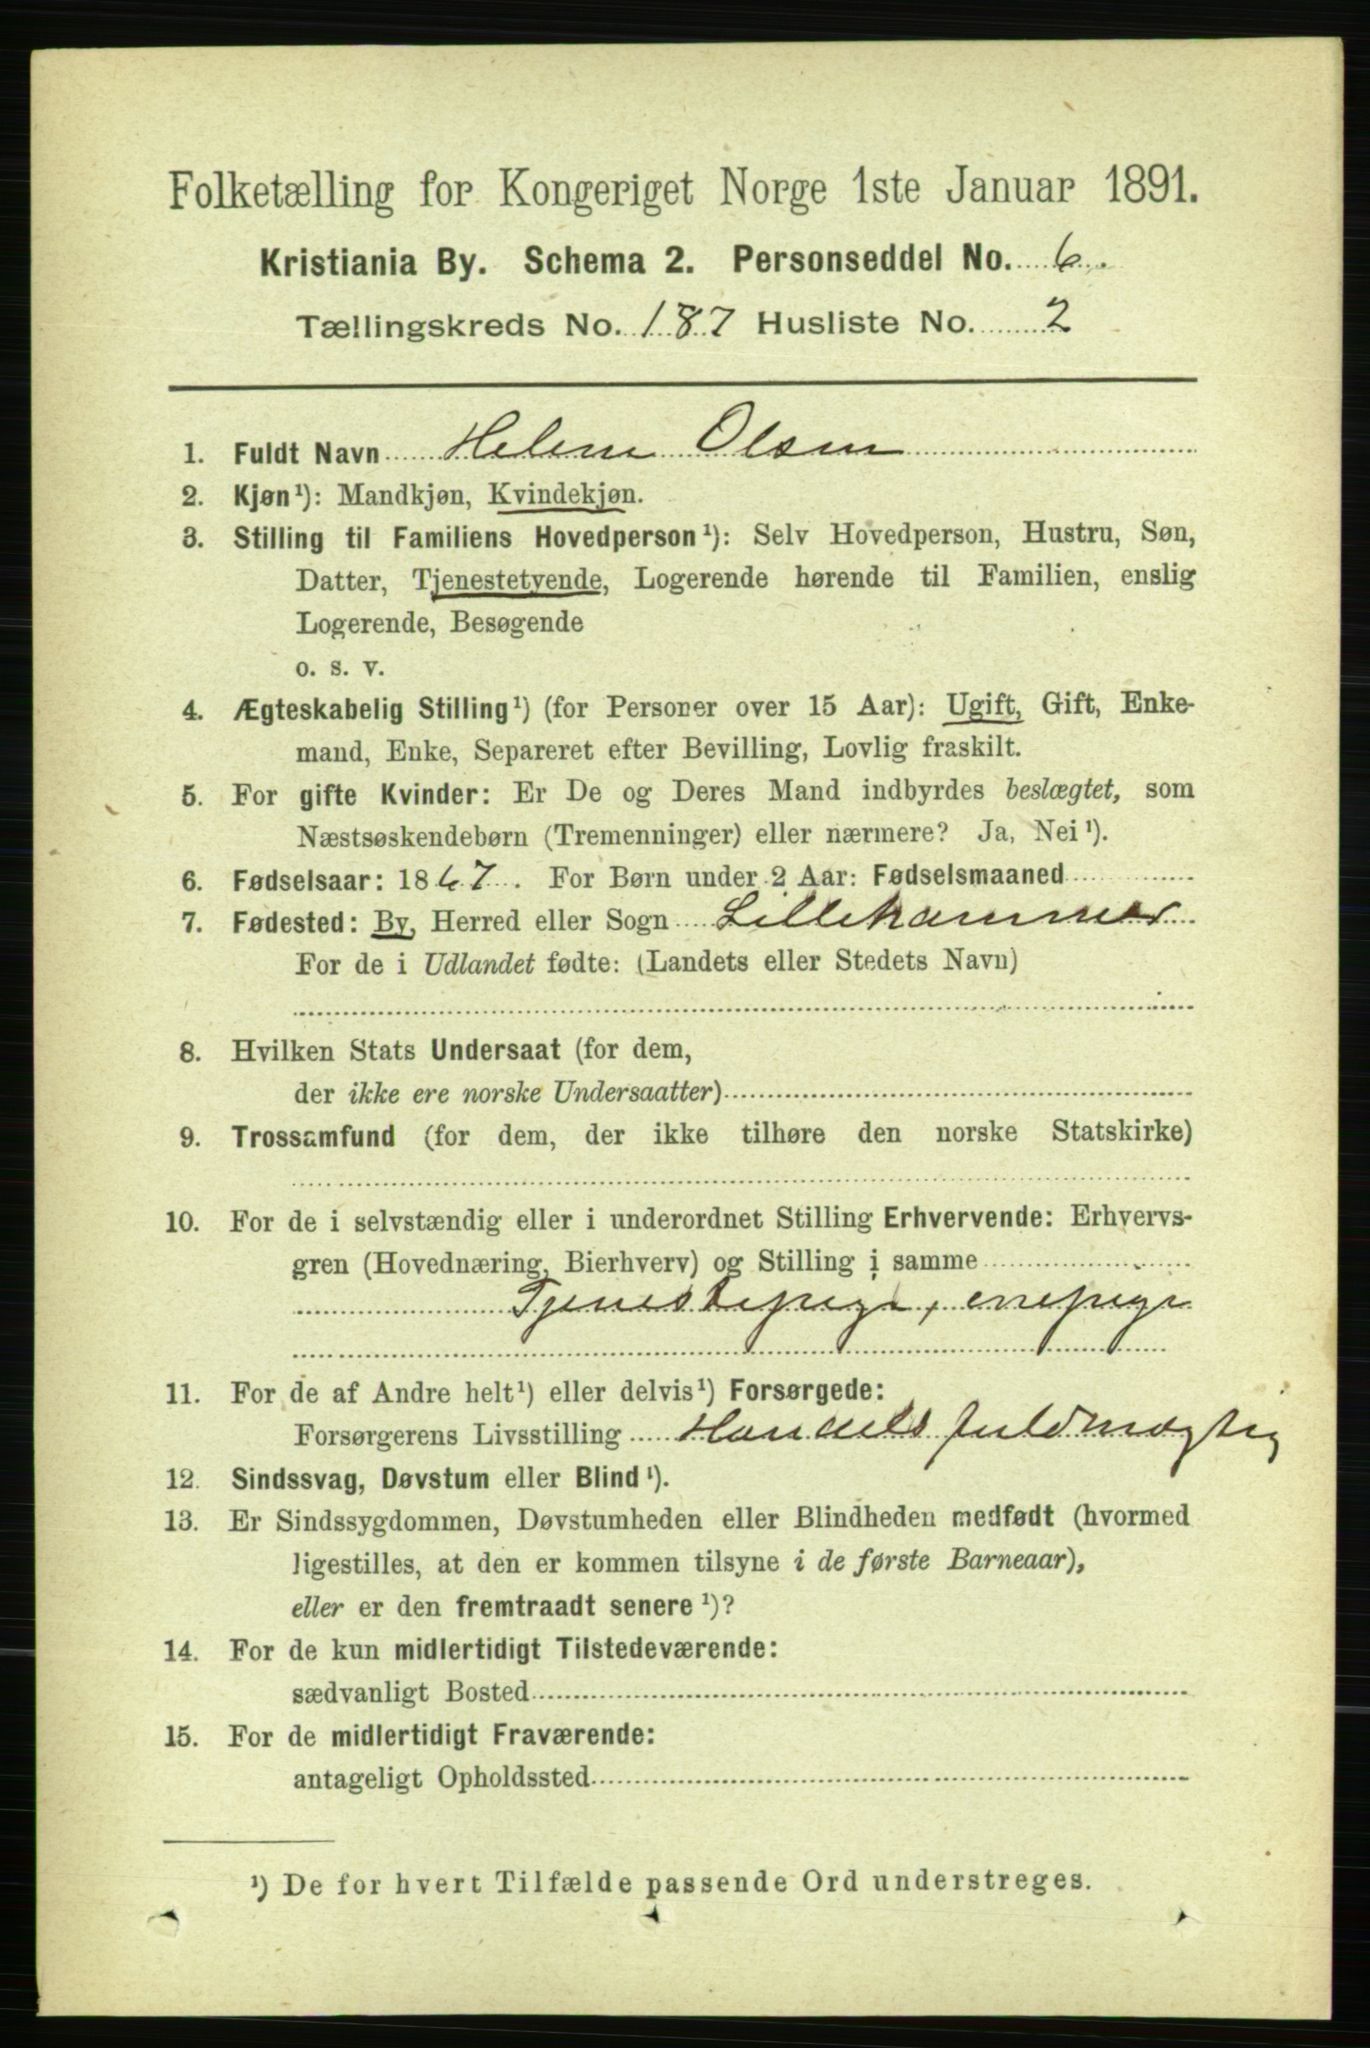 Folketælling for Kongeriget Norge 1ste Januar 1891.
Kristiania By. Schema 2. Personseddel No. 6.
Tællingskreds No. 187 Husliste No. 2
1. Fuldt Navn Helene Olsen
2. Kjøn¹): Mandkjøn, Kvindekjøn.
3. Stilling til Familiens Hovedperson¹): Selv Hovedperson, Hustru, Søn,
Datter, Tjenestetyende, Logerende hørende til Familien, enslig
Logerende, Besøgende
o. s. v.
4. Ægteskabelig Stilling¹) (for Personer over 15 Aar): Ugift, Gift, Enke-
mand, Enke, Separeret efter Bevilling, Lovlig fraskilt.
5. For gifte Kvinder: Er De og Deres Mand indbyrdes beslægtet, som
Næstsøskendebørn (Tremenninger) eller nærmere? Ja, Nei¹).
6. Fødselsaar: 1867. For Børn under 2 Aar: Fødselsmaaned
7. Fødested: By, Herred eller Sogn Lillehammer
For de i Udlandet fødte: (Landets eller Stedets Navn)
8. Hvilken Stats Undersaat (for dem,
der ikke ere norske Undersaatter)
9. Trossamfund (for dem, der ikke tilhøre den norske Statskirke)
10. For de i selvstændig eller i underordnet Stilling Erhvervende: Erhvervs-
gren (Hovednæring, Bierhverv) og Stilling i samme
Tjenestepige, enepige
11. For de af Andre helt¹) eller delvis¹) Forsørgede:
Forsørgerens Livsstilling Handelsfuldmægtig
12. Sindssvag, Døvstum eller Blind¹).
13. Er Sindssygdommen, Døvstumheden eller Blindheden medfødt (hvormed
ligestilles, at den er kommen tilsyne i de første Barneaar),
eller er den fremtraadt senere¹)?
14. For de kun midlertidigt Tilstedeværende:
sædvanligt Bosted
15. For de midlertidigt Fraværende:
antageligt Opholdssted
¹) De for hvert Tilfælde passende Ord understreges.